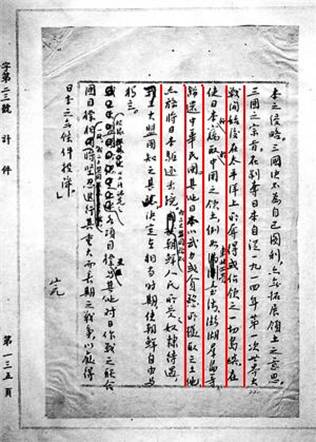 本之侵略。三國決不為自己圖利，亦無拓展領土之意思。
三國之宗旨，在剝奪日本自從一九一四年第一次世界大
戰開始後在太平洋上所奪得或佔領之一切島嶼，在
使日本竊取中國之領土，例如 台灣、澎湖群島等，
歸還中華民國。其他日本以武力或貪慾所攫取之土地，
亦務將日本驅逐出境。 朝鮮人民所受奴隸待遇，
三大盟國知之甚 決定在相當時期使朝鮮自由與
獨立。
項目標 與其他對日作戰之聯合
國目標相 堅忍進行其重大而長期之戰爭，以獲得
日本之無條件投降。」
完
字第二三號 計 件 第一三五頁